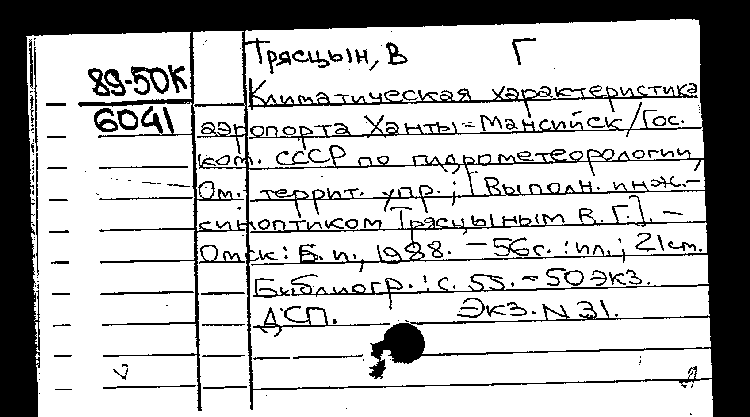 Трясцын, В Г
89-50К
Климатическая характеристика
6041
аэропорта Ханты=Мансийск/Гос.
ком. СССР по гидрометеорологии,
Ом. террит. упр.; [Выполн. инж.-
синоптиком Трясцыным В. Г.]. —
Омск: Б. и., 1988. — 56с. : ил.; 21см.
Библиогр.: с. 55. — 50 экз.
ДСП. Экз. N 31.